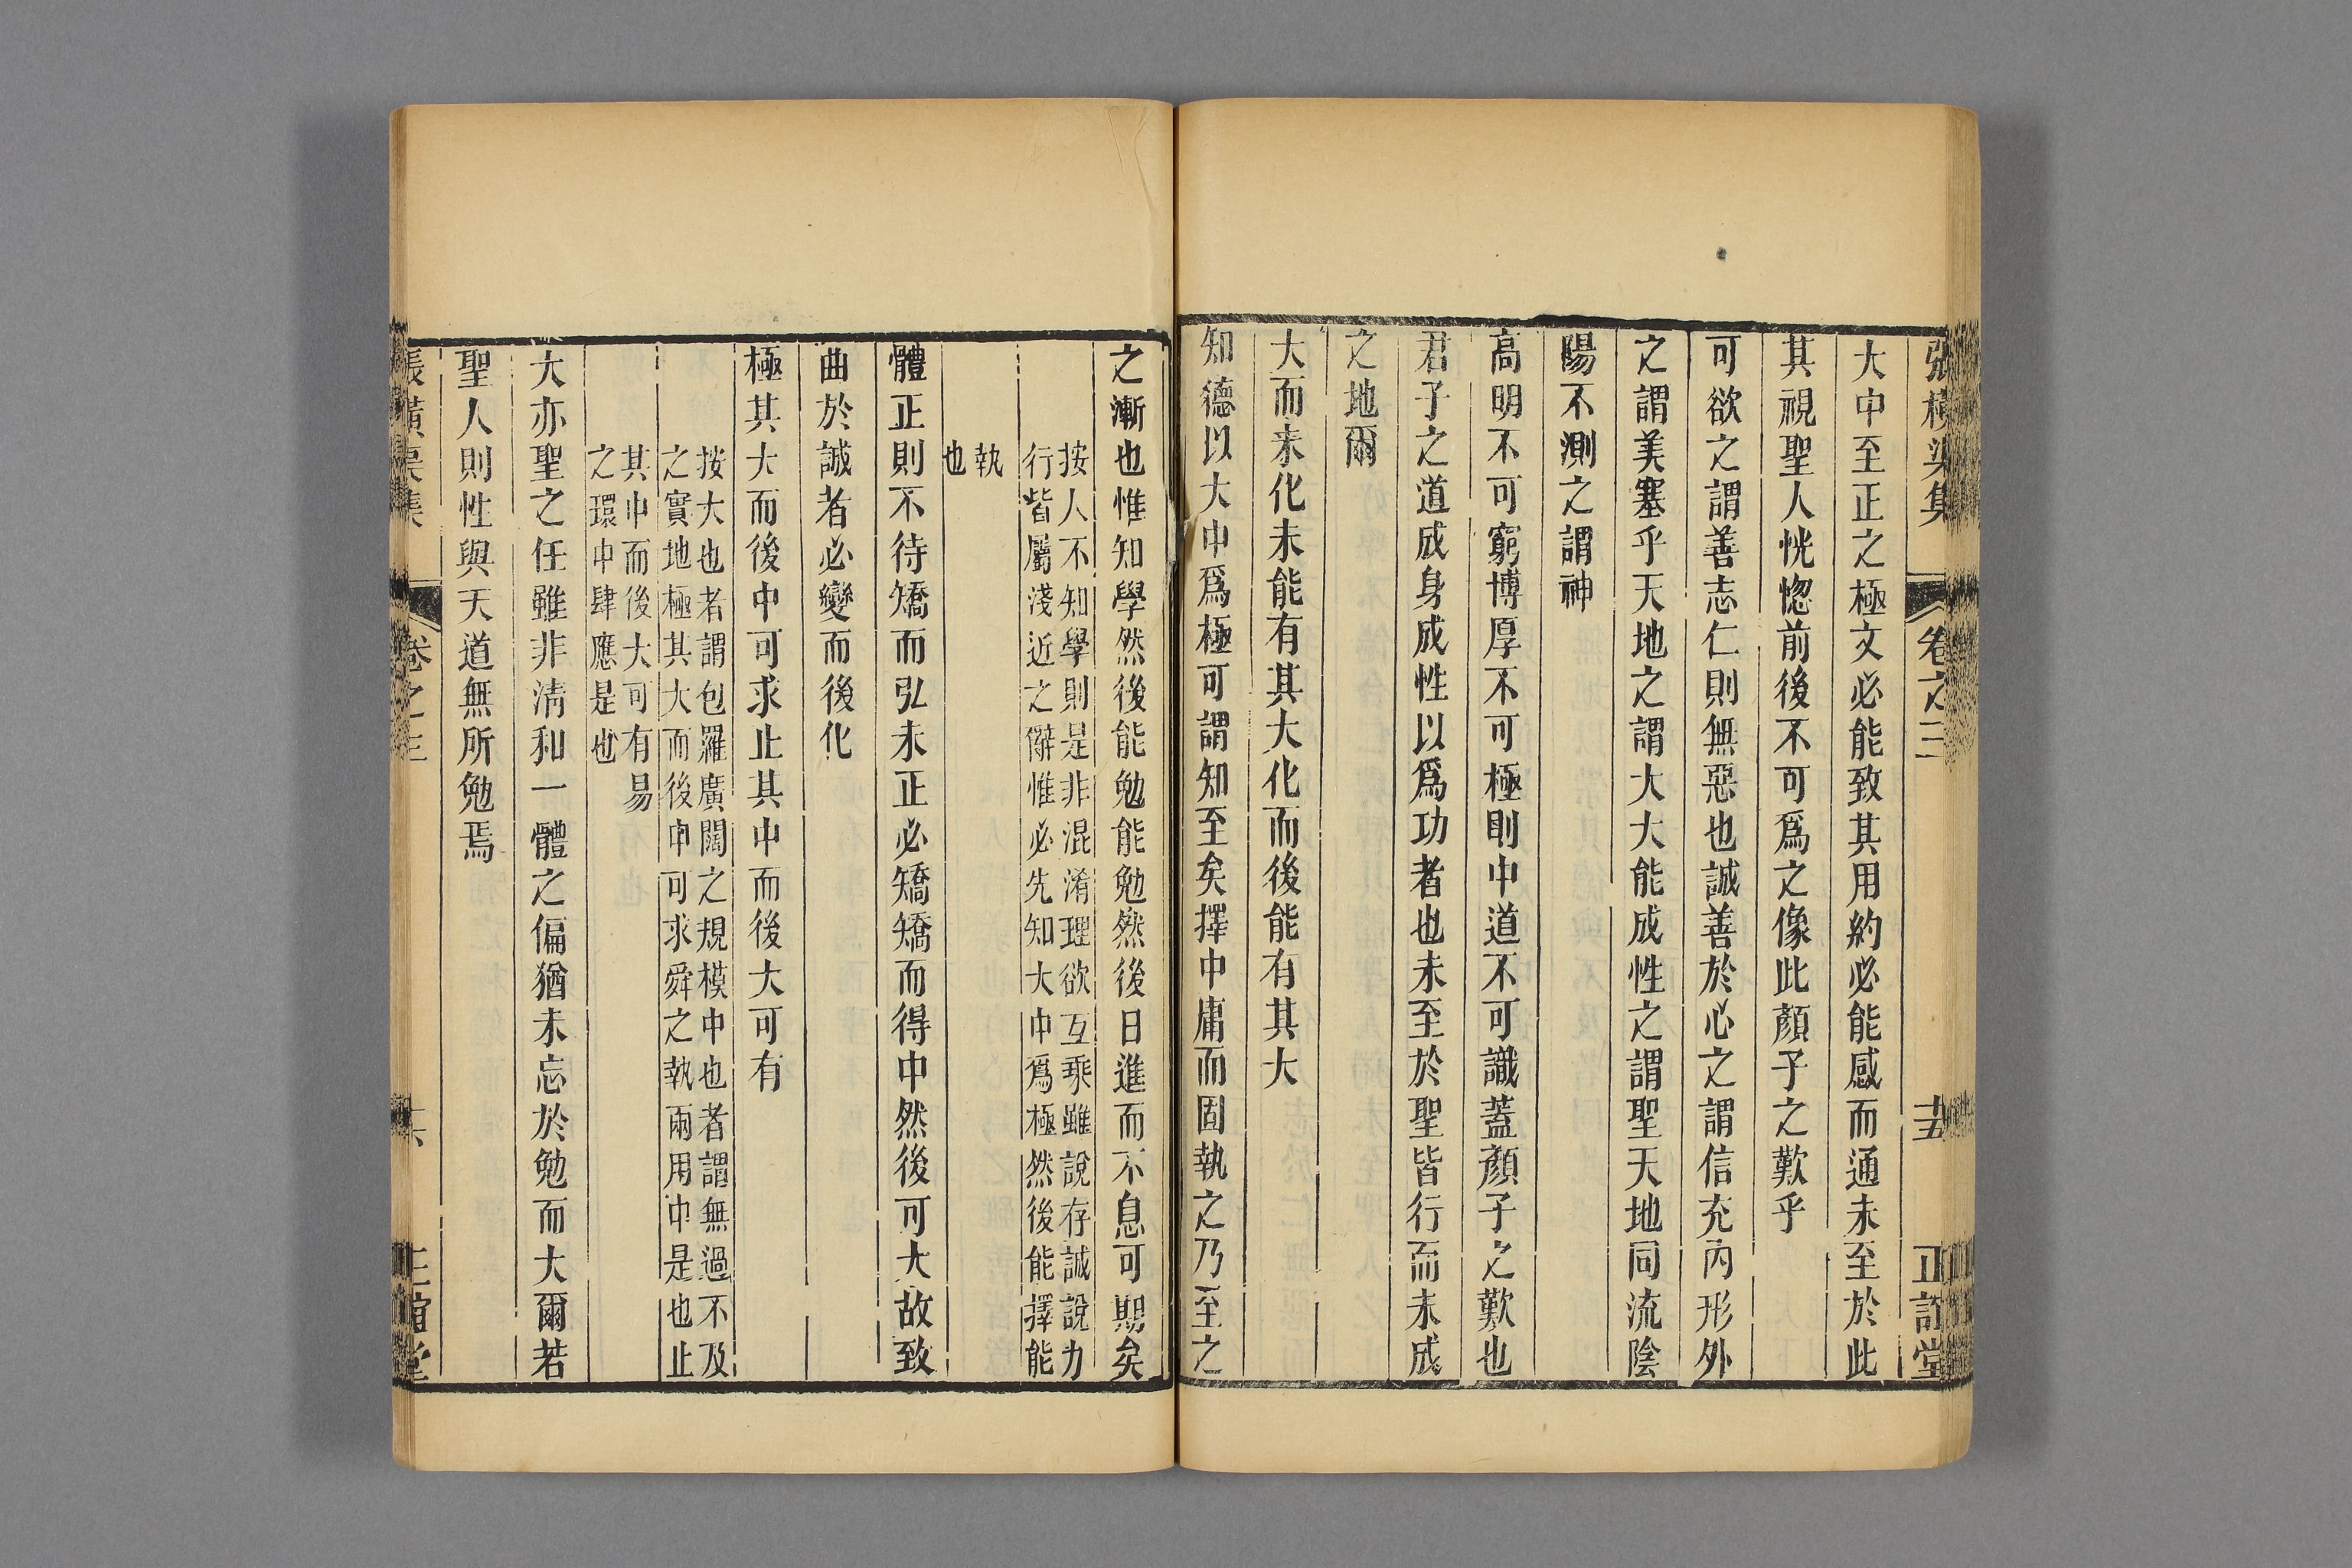 張橫渠集 卷之三 十五 正誼堂
大中至正之極文必能致其用約必能感而通未至於此
其視聖人恍惚前後不可爲之像此顏子之歎乎
可欲之謂善志仁則無惡也誠善於心之謂信充內形外
之謂美塞乎天地之謂大大能成性之謂聖天地同流陰
陽不測之謂神
高明不可窮博厚不可極則中道不可識蓋顏子之歎也
君子之道成身成性以爲功者也未至於聖皆行而未成
之地爾
大而未化未能有其大化而後能有其大
知德以大中爲極可謂知至矣擇中庸而固執之乃至之
之漸也惟知學然後能勉能勉然後日進而不息可期矣
按人不知學則是非混淆理欲互乘雖說存誠說力
行皆屬淺近之僻惟必先知大中爲極然後能擇能
執
也
體正則不待矯而弘未正必矯矯而得中然後可大故致
曲於誠者必變而後化
極其大而後中可求止其中而後大可有
按大也者謂包羅廣闊之規模中也者謂無過不及
之實地極其大而後中可求舜之執兩用中是也止
其中而後大可有易
之環中肆應是也
大亦聖之任雖非清和一體之偏猶未忘於勉而大爾若
聖人則性與天道無所勉焉
張橫渠集 卷之三 十六 正誼堂